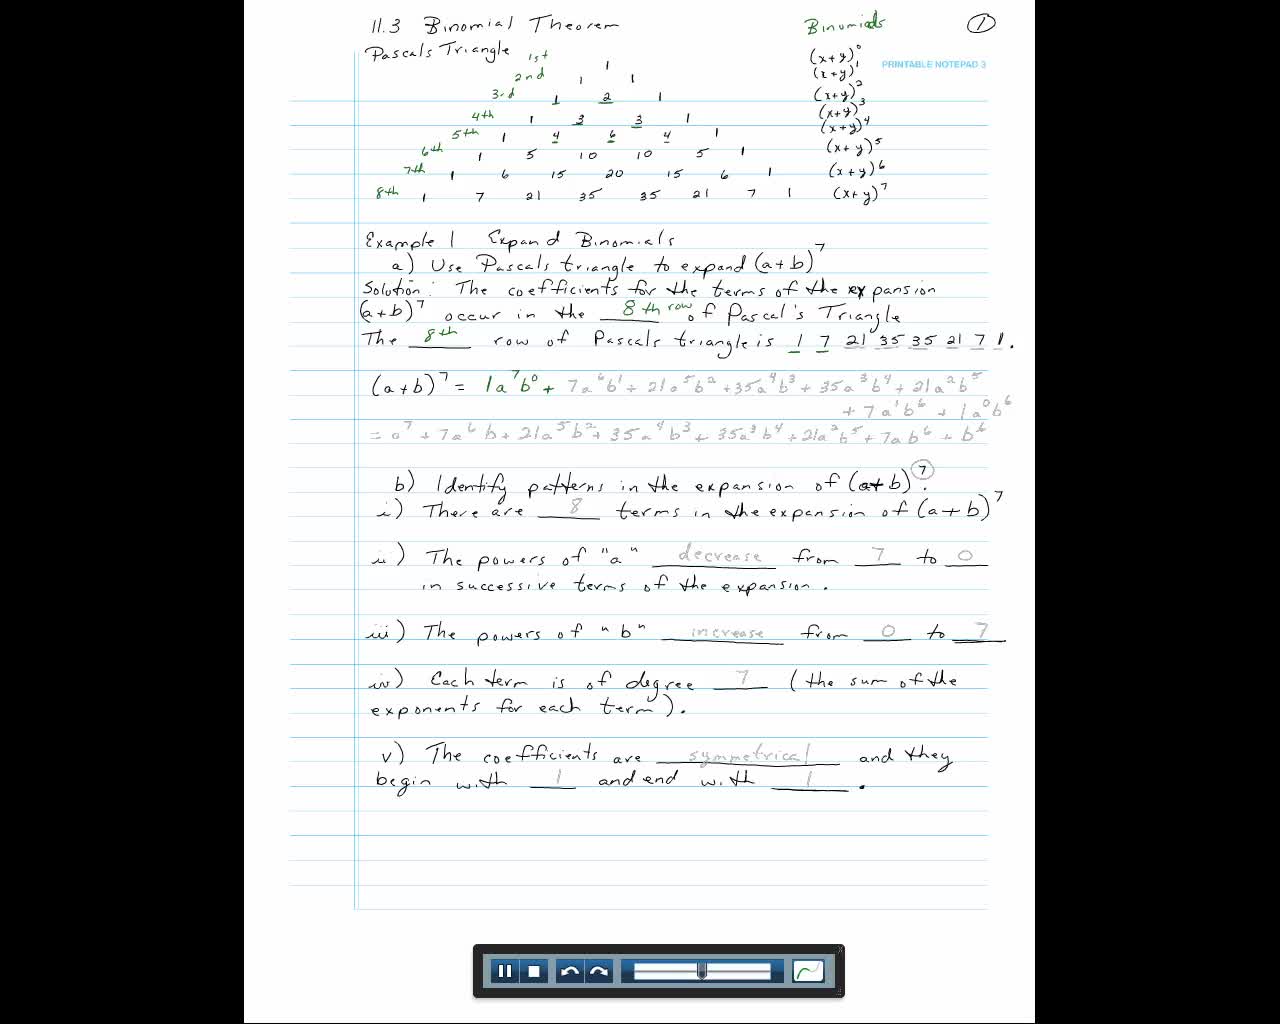 11.3 Binomial Theorem
Binomials
1
Pascals Triangle
PRINTABLE NOTEPAD 3
1st 1 (x+y)^0
2nd 1 1 (x+y)^1
3rd 1 2 1 (x+y)^2
4th 1 3 3 1 (x+y)^3
5th 1 4 6 4 1 (x+y)^4
6th 1 5 10 10 5 1 (x+y)^5
7th 1 6 15 20 15 6 1 (x+y)^6
8th 1 7 21 35 35 21 7 1 (x+y)^7
Example 1 Expand Binomials
a) Use Pascals triangle to expand (a+b)^7
Solution: The coefficients for the terms of the expansion
(a+b)^7 occur in the 8th row of Pascal's Triangle
The 8th row of Pascals triangle is 1 7 21 35 35 21 7 1.
(a+b)^7 = 1a^7b^0 + 7a^6b^1 + 21a^5b^2 + 35a^4b^3 + 35a^3b^4 + 21a^2b^5
+ 7a^1b^6 + 1a^0b^6
= a^7 + 7a^6b + 21a^5b^2 + 35a^4b^3 + 35a^3b^4 + 21a^2b^5 + 7ab^6 + b^6
b) Identify patterns in the expansion of (a+b)^7.
i) There are 8 terms in the expansion of (a+b)^7
ii) The powers of "a" decrease from 7 to 0
in successive terms of the expansion.
iii) The powers of "b" increase from 0 to 7
iv) Each term is of degree 7 (the sum of the
exponents for each term).
v) The coefficients are symmetrical and they
begin with 1 and end with 1.